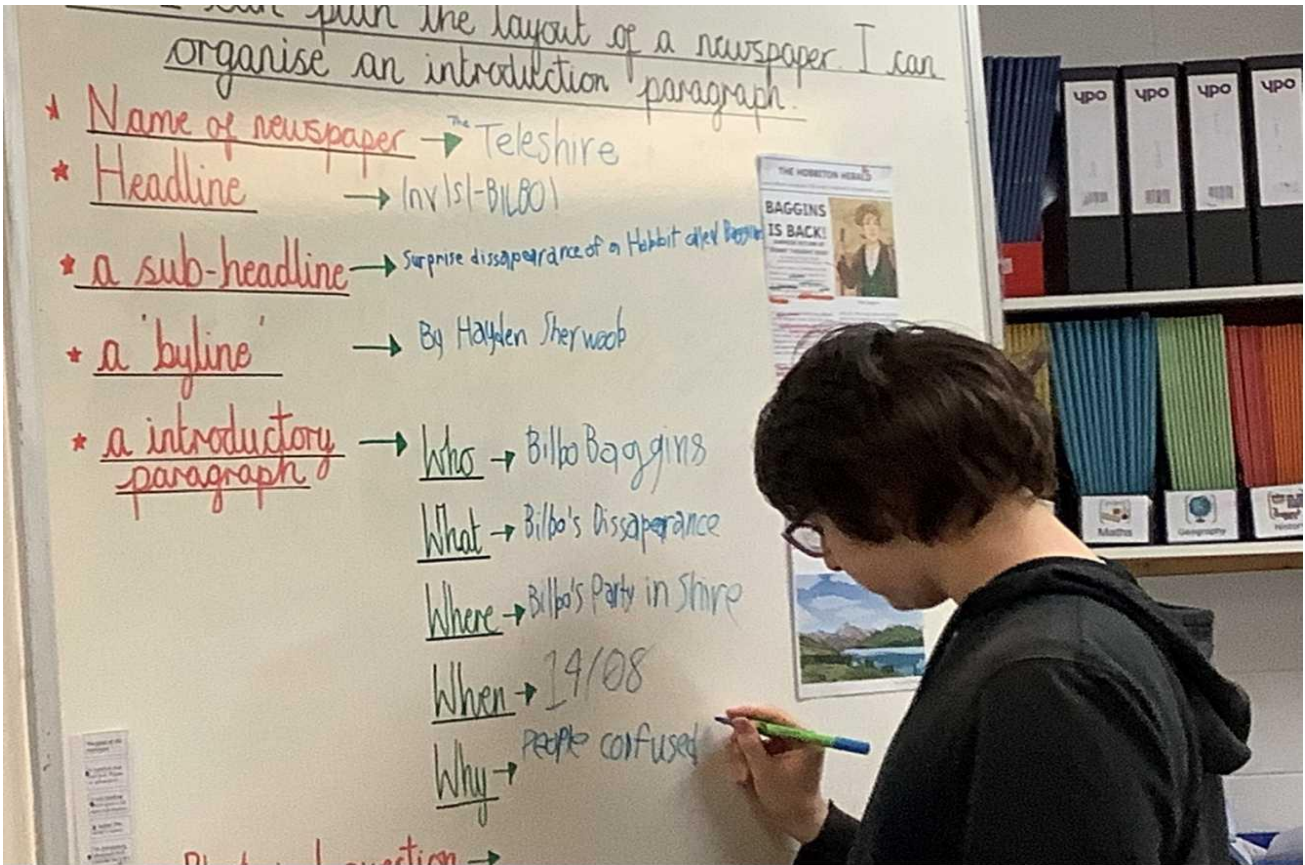 I can plan the layout of a newspaper. I can
organise an introduction paragraph.
* Name of newspaper → The Teleshire
* Headline → InvIsI-BILBO!
* a sub-headline → Surprise dissapearance of a Hobbit called Baggins
* a 'byline' → By Hayden Sherwoob
* a introductory → Who → Bilbo Baggins
paragraph
What → Bilbo's Dissaperance
Where → Bilbo's Party in Shire
When → 14/08
Why → People confused
question →
THE HOBBITON HERALD
BAGGINS
IS BACK!
YPO
YPO
YPO
YPO
Maths
Geography
History